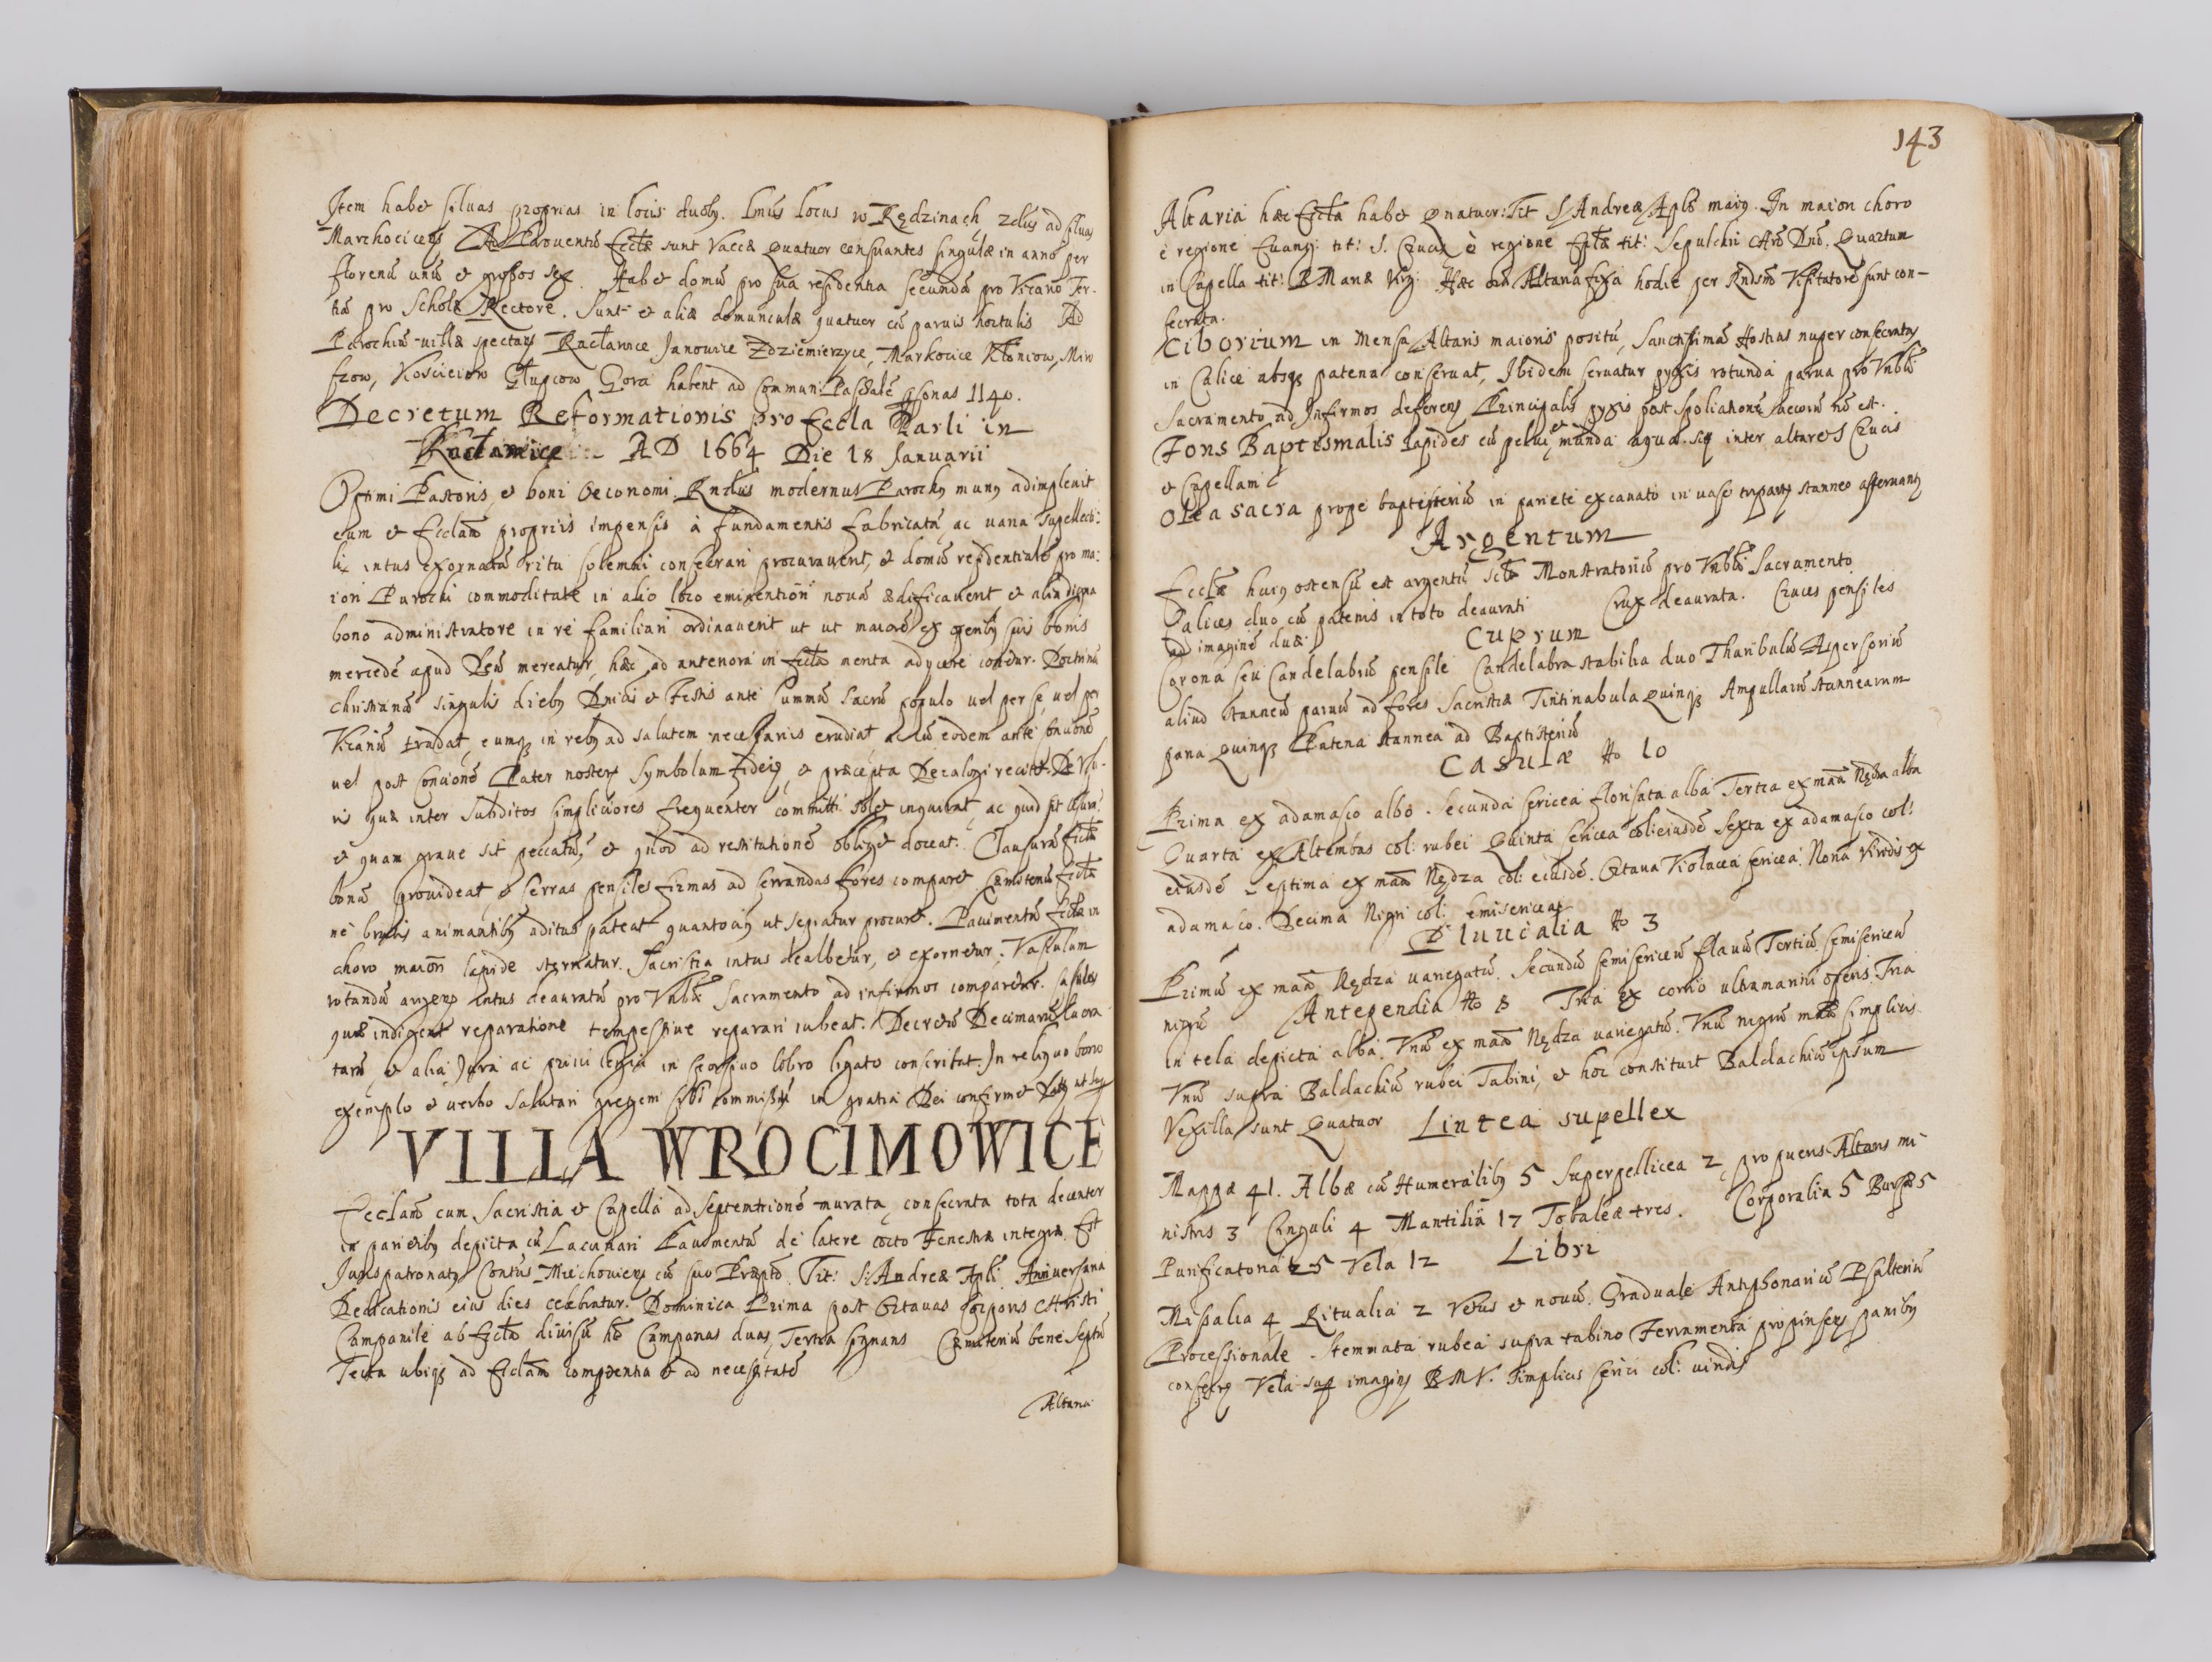 Item habet siluas proprias in locis duobg. Imus locus w Kędzinach, 2dus ad siluas
Marchociceñ Ad Prouentũ Ecclæ sunt Vaccæ Quatuor censuantes singulæ in anno per
florenũ unũ et grossos sex. Habet domũ pro sua residentia secundã pro Vicario Ter-
tiã pro Scholæ Rectore. Sunt et aliæ domunculæ quatuor cũ paruis hortulis Ad
Parochiã uillæ spectañ Racławice Janowice Zdziemierzyce, Markocice Kłonicow, Miro
szow, Kosciciow Głupcow Gora habent ad Communi: Paschalẽ psonas 1140.
Decretum Reformationis pro Eccla Parli in
Racławice AD 1664 Die 18 Januarii
Optimi Pastoris, et boni Oeconomi Rndus modernus Parochg mung adimpleuit
cum et Ecclam propriis impensis à fundamentis fabricatã ac uaria supellecti:
li intus exornatã ritu solemni consecrari procurauerit, et domũ residentialẽ pro ma:
iori Parochi commoditate in alio loco eminentiori nouã ædificauerit et alia digna
bono administratore in re familiari ordinauerit ut ut maiorẽ ex operibg suis bonis
mercedẽ apud Deũ mereatur, hæc ad anteriora in Eccla merita adycere conetur. Doctrinã
christianã singulis diebg Dnicis et Festis ante summũ sacrũ populo uel per se uel per
Vicariũ tradat, eumq in rebg ad salutem necessariis erudiat ac cũ eodem ante concionẽ
uel post concionẽ Pater noster Symbolum Fidei, et præcepta Decalogi recitet. De Usu-
ris quæ inter subditos simpliciores frequenter committi solet inquirat, ac quid sit usura
et quam graue sit peccatũ, et quod ad restitutionẽ obliget doceat. Clausurã Ecclæ
bonã prouideat et serras pensiles firmas ad serrandas fores comparet. Cæmeteriũ Ecclæ
ne brutis animantibg aditus pateat quantociũs ut sepiatur procuret. Pauimentũ Ecclæ in
choro maiori lapide sternatur. Sacristia intus dealbetur, et exornetur. Vasculum
rotundũ argenẽ intus deauratũ pro Vnblĩ Sacramento ad infirmos comparetur. Casulas
quæ indigent reparatione tempestiue reparari iubeat. Decretũ Decimariũ
et alia Jura ac priuilegia in libro ligato conscribat. In reliquo bono
exemplo et uerbo salutari gregem sibi commissũ in gratia Dei confirmet
VILLA WROCIMOWICE
Ecclam cum Sacristia et Capella ad Septemtrionẽ murata, consecrata tota decenter
in parietibg depicta cũ Lacunari Pauimentũ de latere cocto Fenestræ integræ. Est
Jurispatronatg Contus Miechouieñ cũ suo Præpto. Tit: S: Andreæ Apli Anniuersaria
Dedicationis eius dies celebratur. Dominica Prima post Octauas Corporis Christi
Campanile ab Eccla diuisũ hẽt Campanas duas, Tertia signans Cæmiteriũ bene septũ
Tecta ubiq ad Ecclam competentia et ad necessitatẽ
Altaria
143
Altaria hæc Eccla habet Quatuor: Tit S Andreæ Apli maig. In maiori choro
è regione Euang: tit: S. Crucis è regione Eplæ tit: Sepulchri Chri Dni. Quartum
in Capella tit: B Mariæ Virg: Hæc oia Altaria fixa hodie per Rndsmũ Visitatorẽ sunt con-
secrata.
Ciborium in Mensa Altaris maioris positũ, Sanctissimas Hostias nuper consecratas
in Calice absq patena conseruat, Ibidem seruatur pyxis rotunda parua pro Vnblĩ
Sacramento ad Infirmos deferenẽ Principalis pyxis post spoliationẽ Suecorũ nõ est.
Fons Baptismalis lapides cũ pelui, et munda aqua sita inter altare S Crucis
et Capellam
Olea sacra prope baptisteriũ in pariete excauato in uase tripartẽ stanneo asseruantg
Argentum
Ecclæ huig ostensũ est argentũ Monstratoriũ pro Vnblĩ Sacramento
Calices duo cũ patenis in toto deaurati Crux deaurata. Cruces pensiles
ad imaginẽ duæ.
Cuprum
Corona seu Candelabrũ pensile Candelabra stabilia duo Thuribulũ Aspersoriũ
aliud stanneũ paruũ ad fores Sacristiæ Tintinabula Quinq Ampullarũ stannearum
paria Quinq Patena stannea ad Baptisteriũ
Casulæ No 10
Prima ex adamasco albo. Secunda sericea florisata alba Tertia ex maã Nędza alba
Quarta ex Altembas col: rubei Quinta sericea col: eiusdẽ Sexta ex adamasco col:
eiusdẽ Septima ex maã Nędza col: eiusdẽ. Octaua Violacea sericea: Nona Viridis ex
adamasco. Decima Nigri col: semisericea
Pluuialia No 3
Primũ ex maã Nędza uariegatũ. Secundũ semisericeũ flauũ Tertiũ semisericeũ
nigrũ Antependia No 8 Tria ex corio ultramarini operis. Tria
in tela depicta alba. Vnũ ex maã Nędza uariegatũ. Vnũ nigrũ simplius
Vnũ supra Baldachiũ rubei Tabini, et hoc constituit Baldachiũ ipsum
Vexilla sunt Quatuor Lintea supellex
Mappæ 41. Albæ cũ Humeralibg 5 Superpellicea 2, pro pueris Altaris mi-
nistris 3 Cinguli 4 Mantilia 17 Tobaleæ tres. Corporalia 5 Bursæ 5
Purificatoria 25 Vela 12 Libri
Missalia 4 Ritualia 2 Vetus et nouũ. Graduale Antiphonariũ Psalteriũ
Processionale. Stemmata rubea supra tabino Ferramenta pro pinsenẽ panibg
consecrẽ Vela sup imagines BMV. simplicis serici col: uiridis